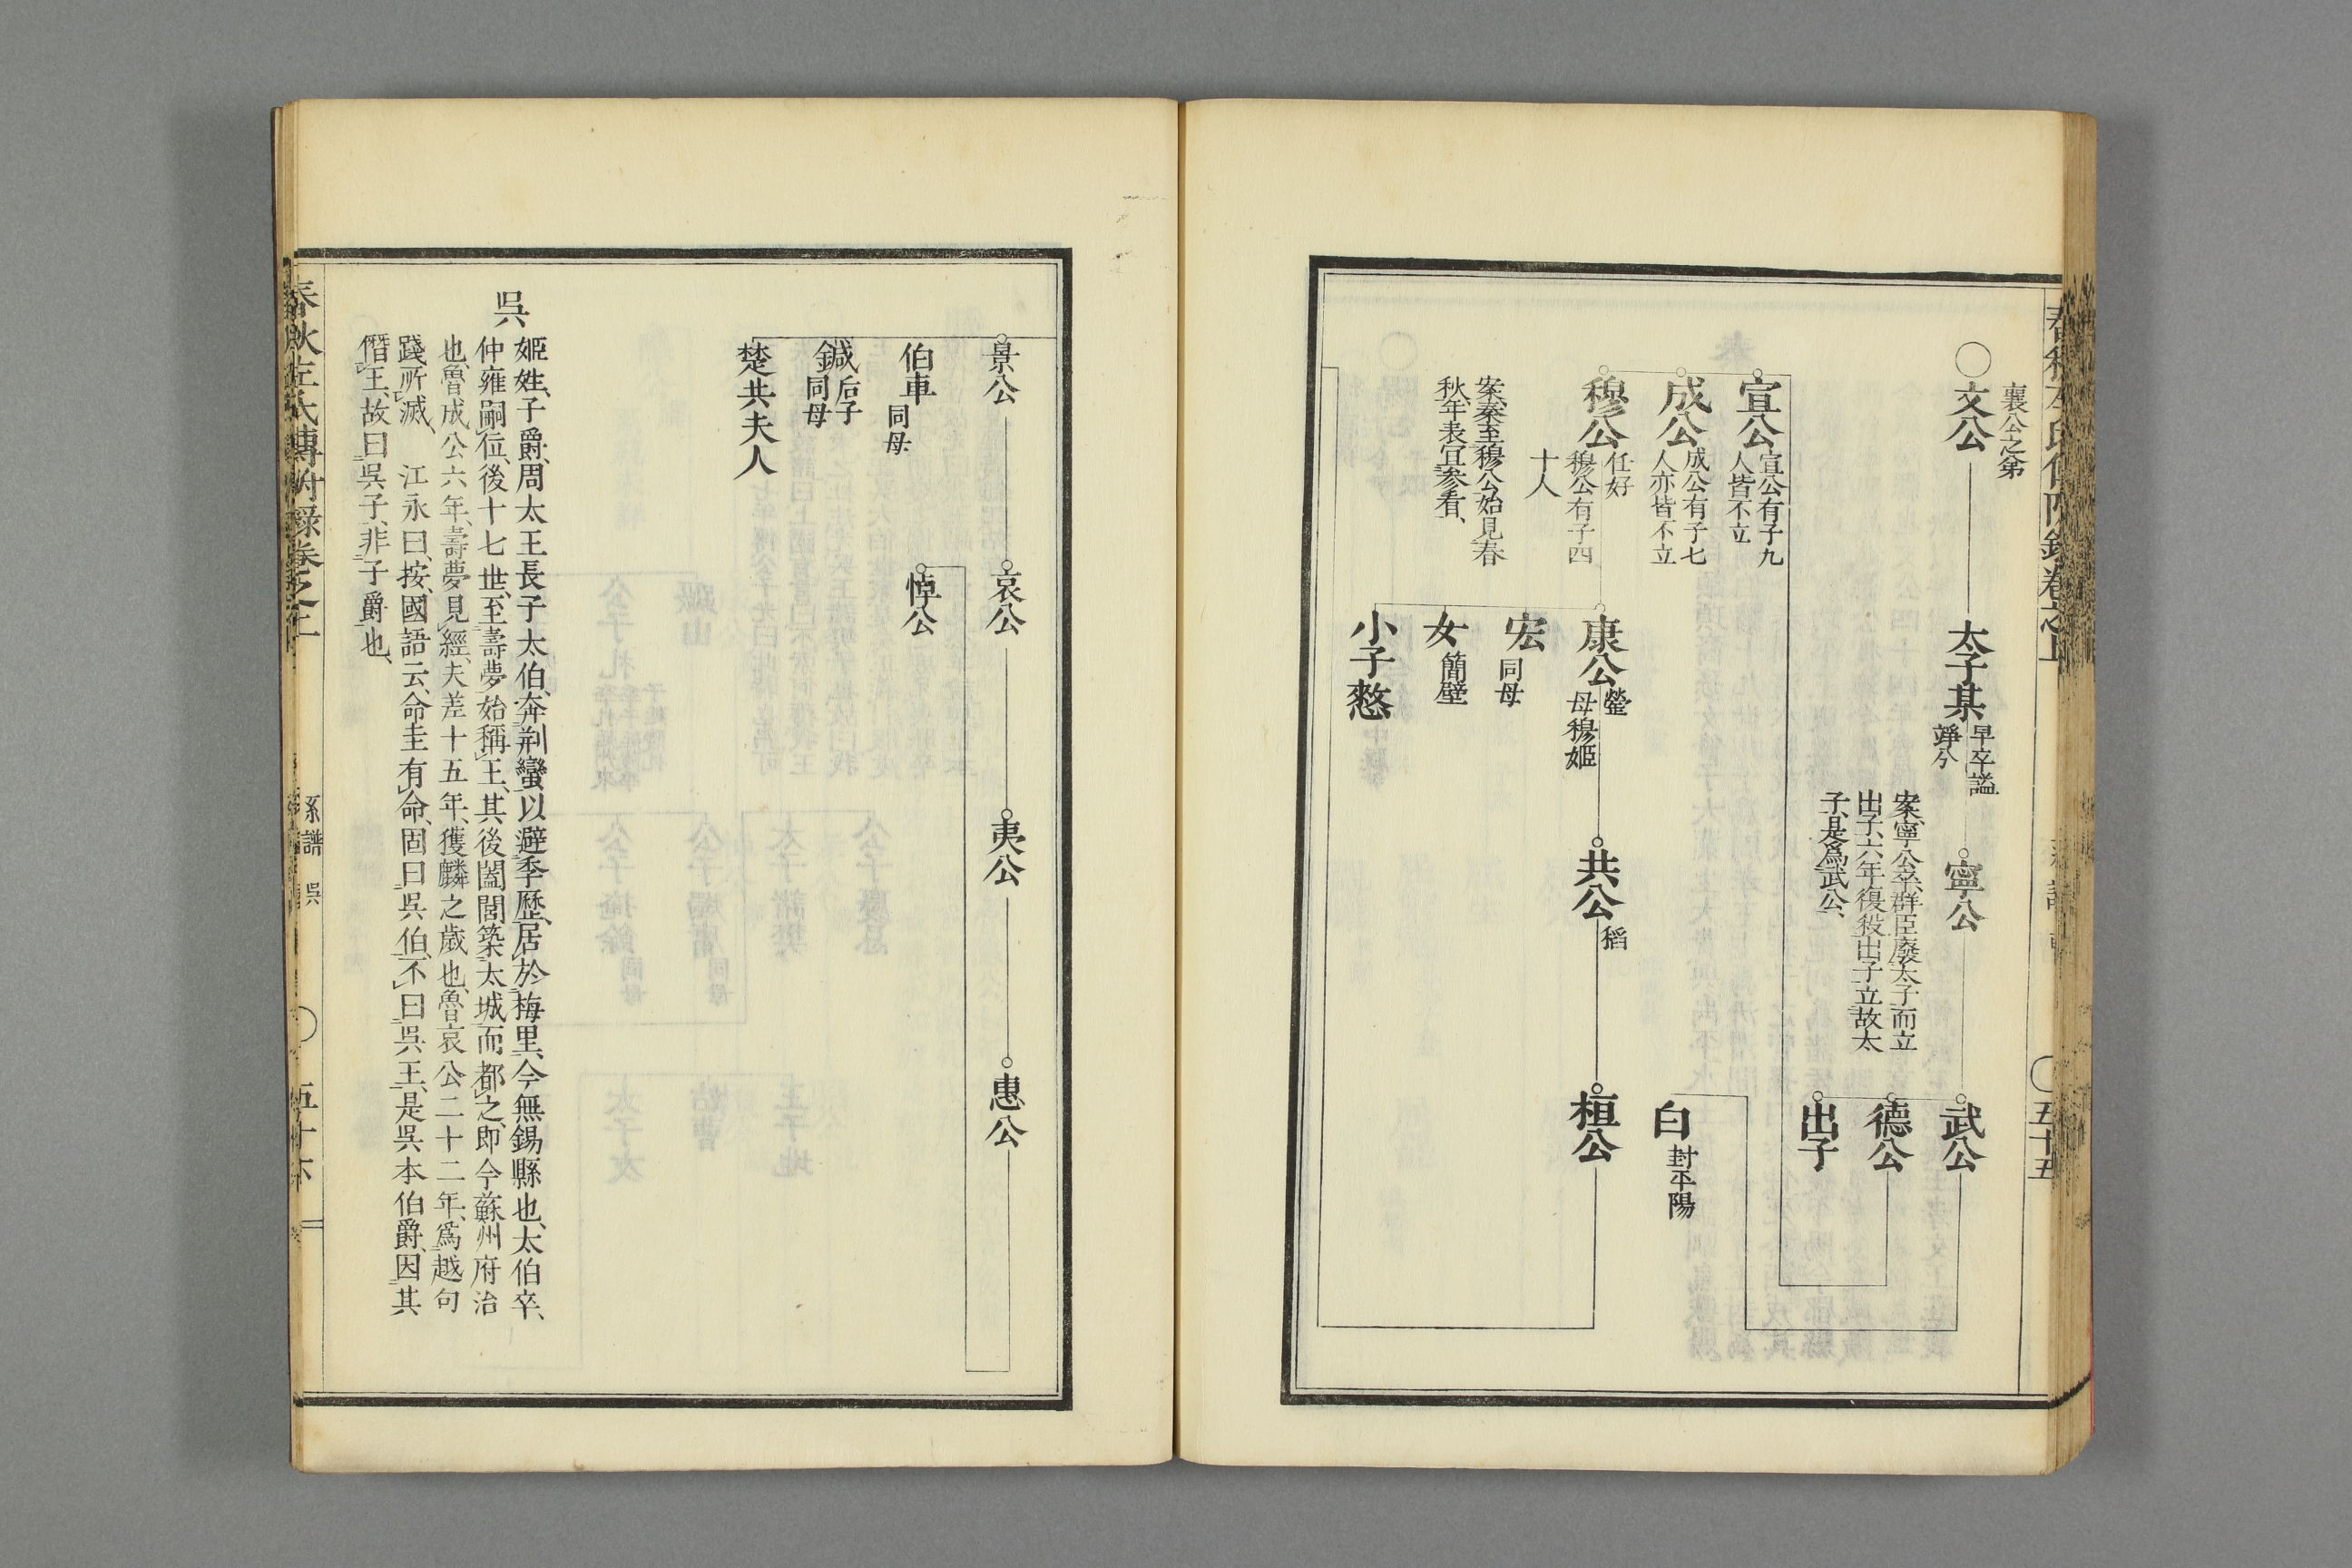 襄公之弟
〇文公
太子某
早卒謚
竫公
寧公
案、寧公卒、群臣廢太子而立
出子、六年復殺出子立故太
子、是爲武公、
武公
德公
出子
白
封平陽
宣公
宣公有子九
人皆不立
成公
成公有子七
人亦皆不立
穆公
任好
穆公有子四
十人
案、秦至穆公始見春
秋、年表宜參看、
康公
罃
母穆姬
宏
同母
女
簡璧
小子憖
共公
稻
桓公
〇五十五
景公
哀公
夷公
惠公
悼公
伯車
同母
鍼
后子
同母
楚共夫人
吳
姬姓、子爵、周太王長子太伯、奔荆蠻以避季歷、居於梅里、今無錫縣也、太伯卒、
仲雍嗣位、後十七世、至壽夢始稱王、其後闔閭築太城而都之、即今蘇州府治
也、魯成公六年、壽夢見經、夫差十五年、獲麟之歲也、魯哀公二十二年、爲越句
踐所滅、　江永曰、按、國語云、命圭有命、固曰吳伯、不曰吳王、是吳本伯爵、因其
僭王、故曰吳子、非子爵也、
春秋左氏傳附錄卷之上
系譜　吳
〇五十六